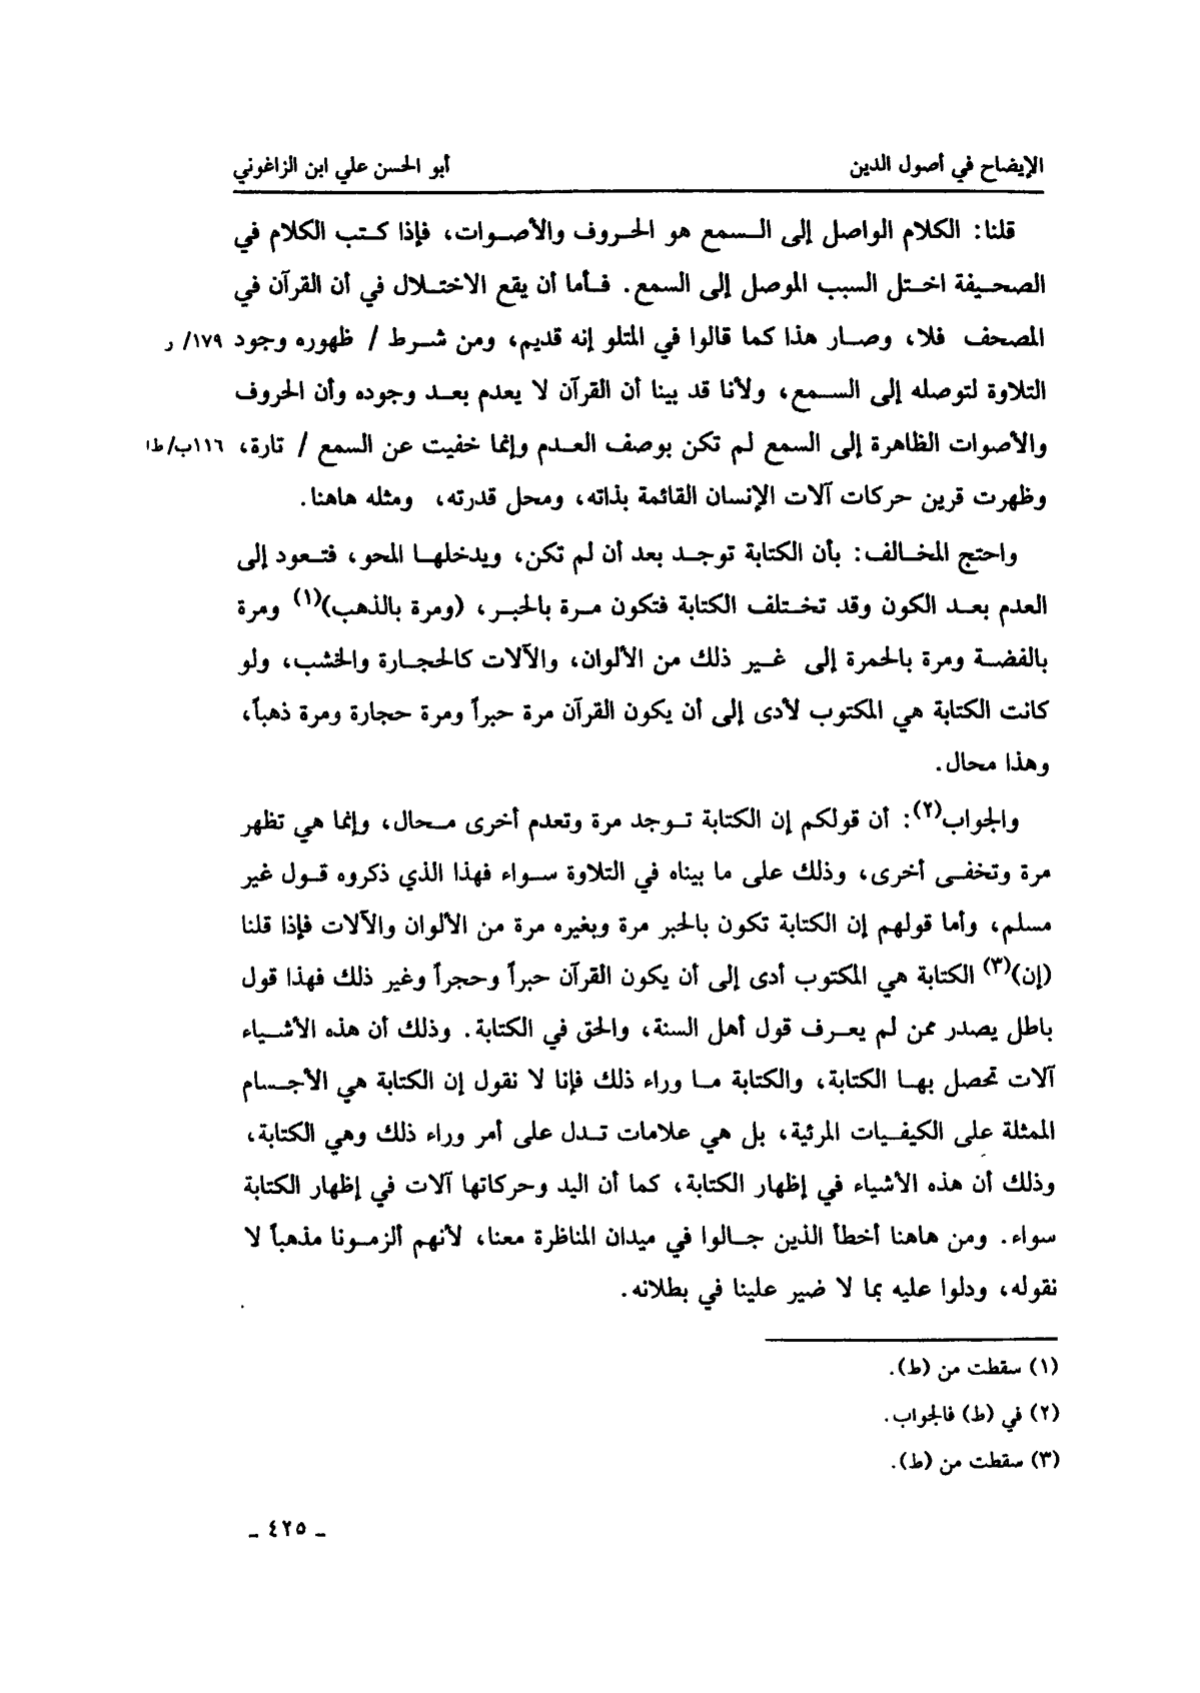 الإيضاح في أصول الدين
أبو الحسن علي ابن الزاغوني
قلنا: الكلام الواصل إلى السمع هو الحروف والأصوات، فإذا كتب الكلام في
الصحيفة اختل السبب الموصل إلى السمع. فأما أن يقع الاختلال في أن القرآن في
المصحف فلا، وصار هذا كما قالوا في المتلو إنه قديم، ومن شرط / ظهوره وجود ١٧٩/ ر
التلاوة لتوصله إلى السمع، ولأنا قد بينا أن القرآن لا يعدم بعد وجوده وأن الحروف
والأصوات الظاهرة إلى السمع لم تكن بوصف العدم وإنما خفيت عن السمع / تارة، ١١٦ب/ط١
وظهرت قرين حركات آلات الإنسان القائمة بذاته، ومحل قدرته، ومثله هاهنا.
واحتج المخالف: بأن الكتابة توجد بعد أن لم تكن، ويدخلها المحو، فتعود إلى
العدم بعد الكون وقد تختلف الكتابة فتكون مرة بالحبر، (ومرة بالذهب)(١) ومرة
بالفضة ومرة بالحمرة إلى غير ذلك من الألوان، والآلات كالحجارة والخشب، ولو
كانت الكتابة هي المكتوب لأدى إلى أن يكون القرآن مرة حبراً ومرة حجارة ومرة ذهباً،
وهذا محال.
والجواب(٢): أن قولكم إن الكتابة توجد مرة وتعدم أخرى محال، وإنما هي تظهر
مرة وتخفى أخرى، وذلك على ما بيناه في التلاوة سواء فهذا الذي ذكروه قول غير
مسلم، وأما قولهم إن الكتابة تكون بالحبر مرة وبغيره مرة من الألوان والآلات فإذا قلنا
(إن)(٣) الكتابة هي المكتوب أدى إلى أن يكون القرآن حبراً وحجراً وغير ذلك فهذا قول
باطل يصدر ممن لم يعرف قول أهل السنة، والحق في الكتابة. وذلك أن هذه الأشياء
آلات تحصل بها الكتابة، والكتابة ما وراء ذلك فإنا لا نقول إن الكتابة هي الأجسام
الممثلة على الكيفيات المرئية، بل هي علامات تدل على أمر وراء ذلك وهي الكتابة،
وذلك أن هذه الأشياء في إظهار الكتابة، كما أن اليد وحركاتها آلات في إظهار الكتابة
سواء. ومن هاهنا أخطأ الذين جالوا في ميدان المناظرة معنا، لأنهم ألزمونا مذهباً لا
نقوله، ودلوا عليه بما لا ضير علينا في بطلانه.
(١) سقطت من (ط).
(٢) في (ط) فالجواب.
(٣) سقطت من (ط).
ـ ٤٢٥ ـ